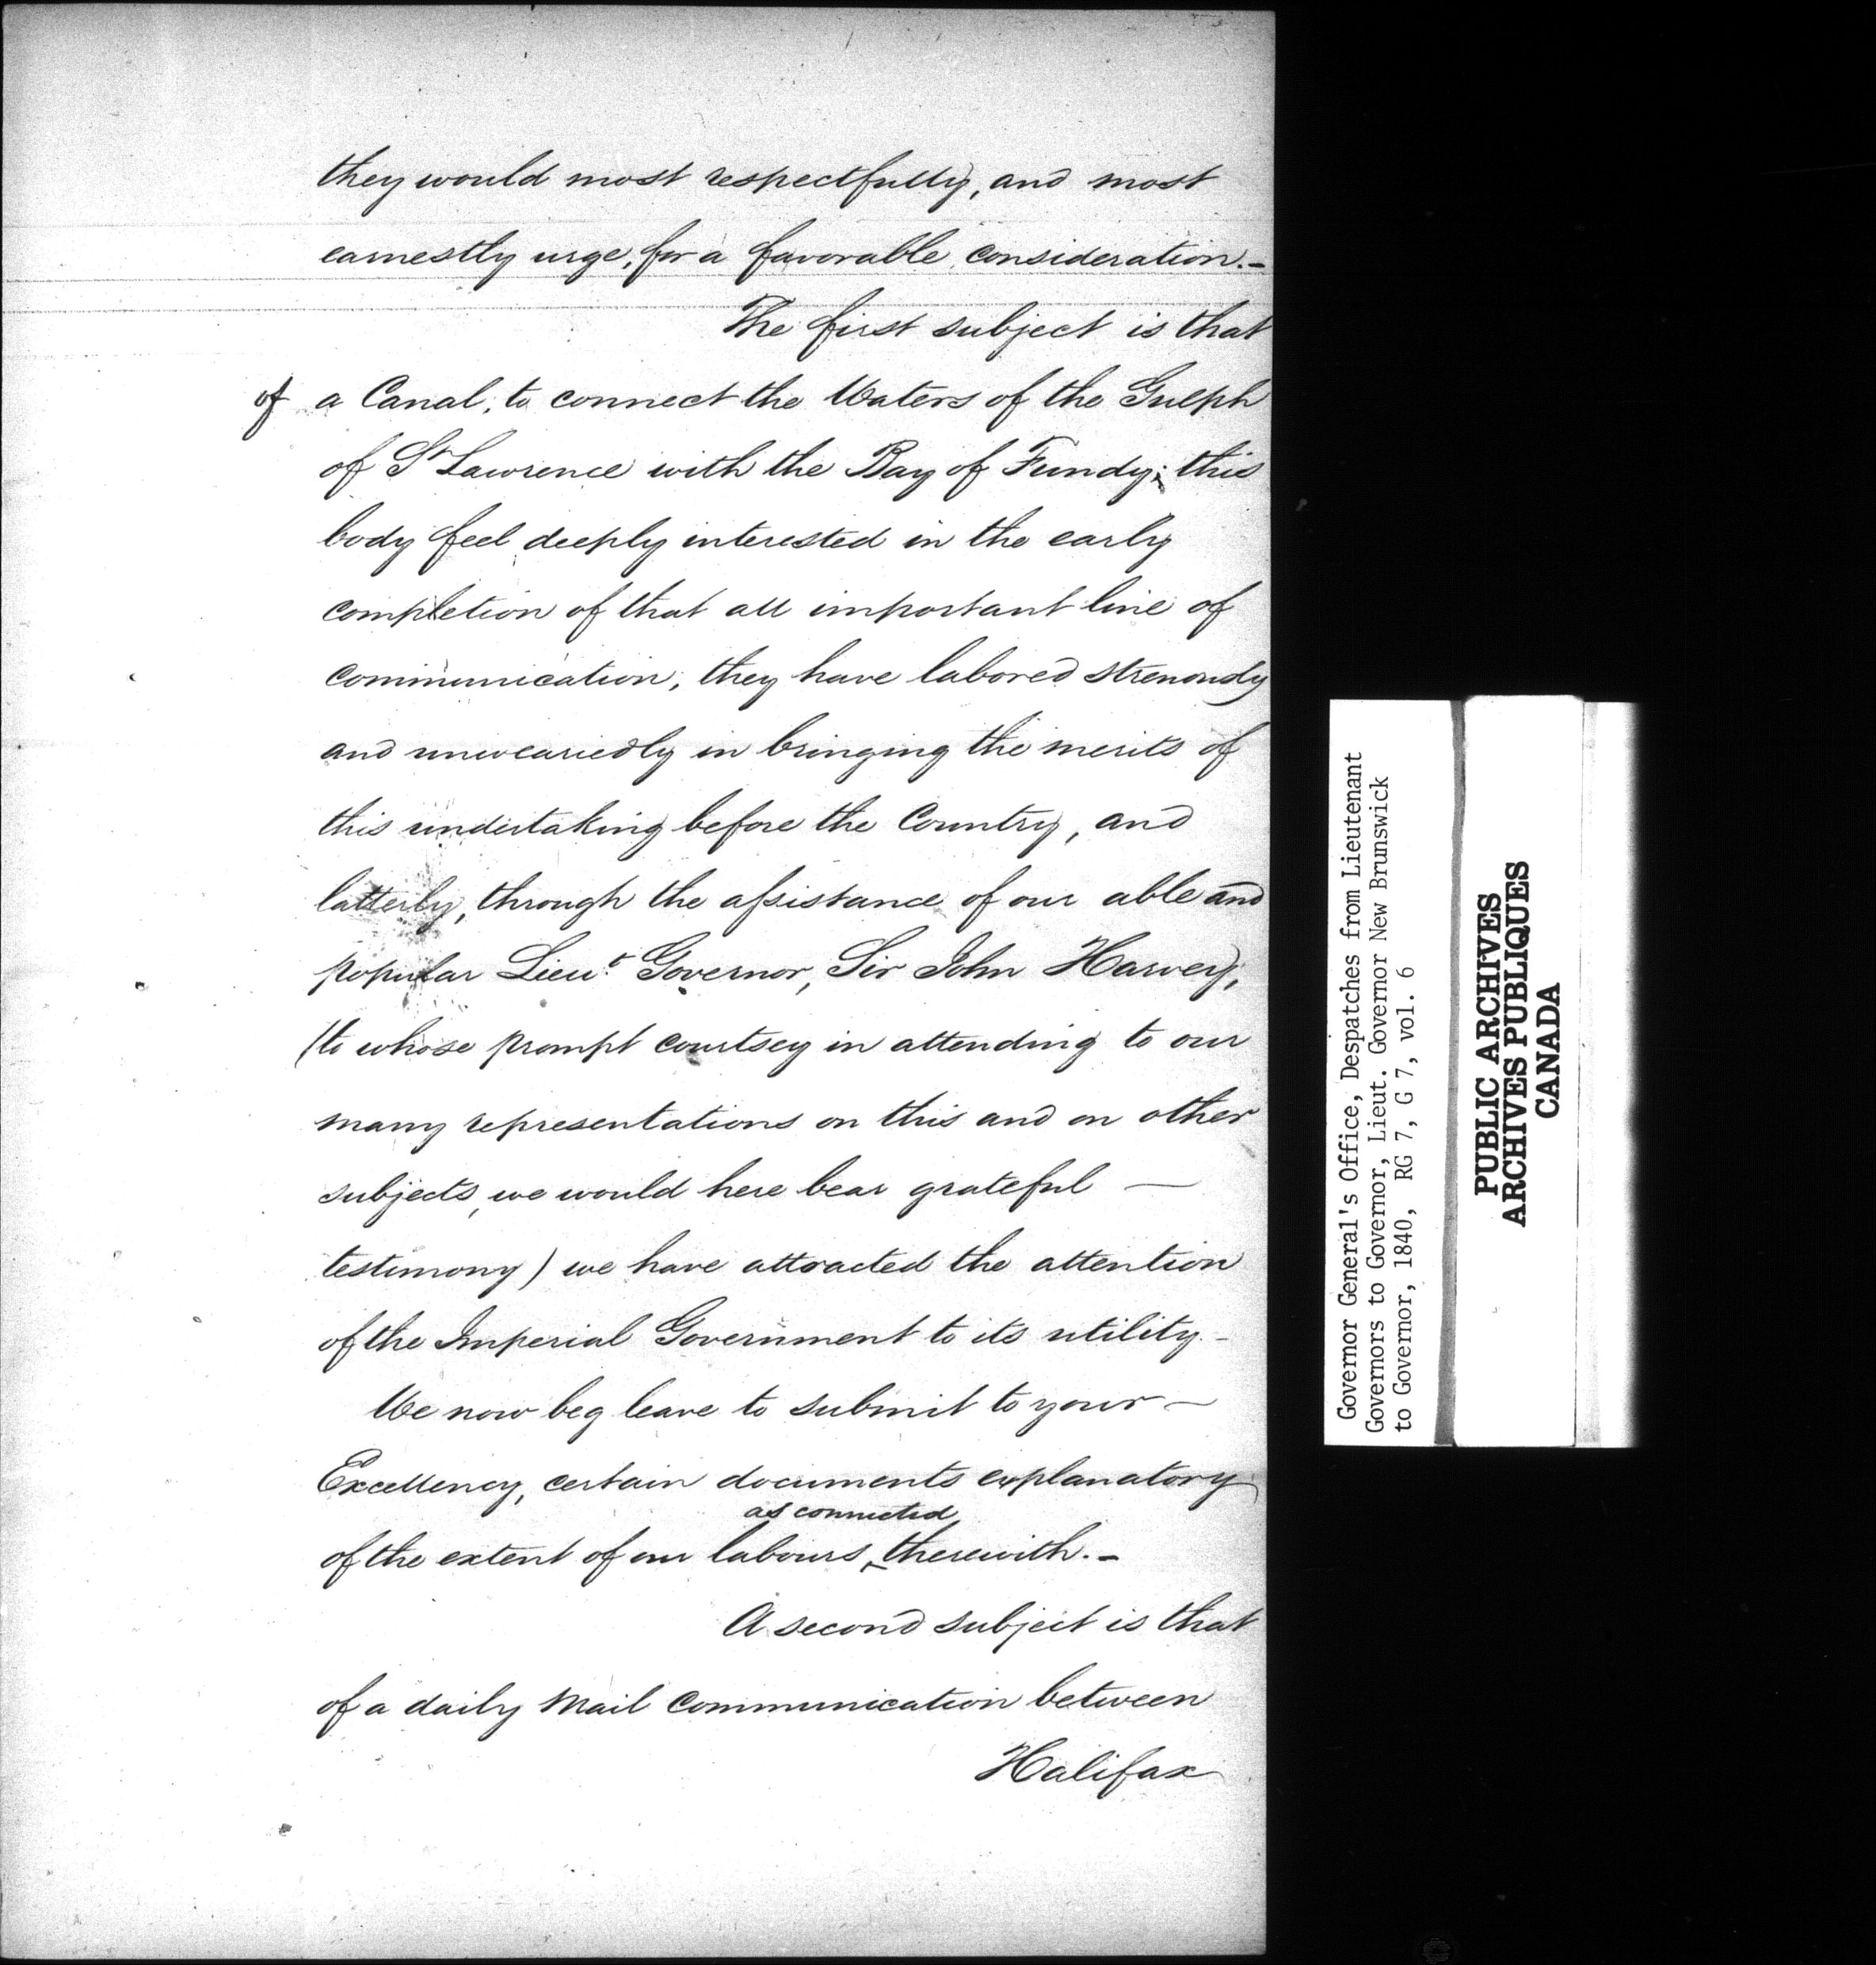 they would most respectfully, and most
earnestly urge, for a favorable consideration.–
The first subject is that
of a Canal, to connect the Waters of the Gulph
of St Lawrence with the Bay of Fundy; this
body feel deeply interested in the early
completion of that all important line of
communication, they have labored strenously
and unweariedly in bringing the merits of
this undertaking before the Country, and
latterly, through the assistance of our able and
popular Lieut. Governor, Sir John Harvey,
(to whose prompt courtsey in attending to our
many representations on this and on other
subjects, we would here bear grateful —
testimony) we have attracted the attention
of the Imperial Government to its utility.–
We now beg leave to submit to your –
Excellency, certain documents explanatory
as connected
of the extent of our labours, therewith.–
A second subject is that
of a daily Mail Communication between
Halifax
Governor General's Office, Despatches from Lieutenant
Governors to Governor, Lieut. Governor New Brunswick
to Governor, 1840, RG 7, G 7, vol. 6
PUBLIC ARCHIVES
ARCHIVES PUBLIQUES
CANADA